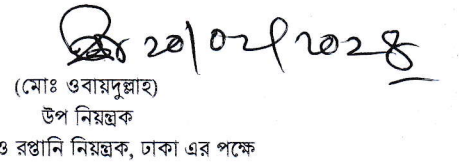 ২০/০২/২০২৪
(মোঃ ওবায়দুল্লাহ)
উপ নিয়ন্ত্রক
ও রপ্তানি নিয়ন্ত্রক, ঢাকা এর পক্ষে